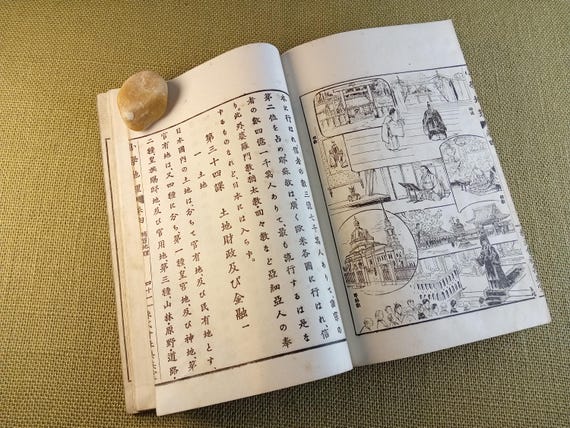 本に行はれ、信者の數三億七千萬人ありて、
第二位を占め、耶蘇教は、廣く歐米各國に行はれ、信
者の數四億一千萬人あり。最も流行するは是な
り。此外婆羅門教、猶太教、回々教など、亞細亞人の奉
するものあれど、日本には入らず。
第三十四課 土地財政及び金融一
一 土地
日本國内の土地は、分ちて官有地及び民有地とす。
官有地は、又四種に分ち、第一種皇宮地及び神地、第
二種皇族賜邸地及び官用地、第三種山林原野道路、
小學地理
四十一